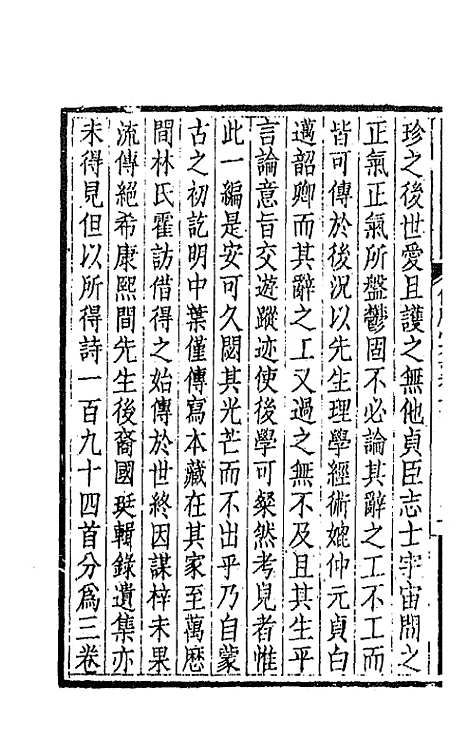 珍之後世愛且護之無他貞臣志士宇宙間之
正氣正氣所盤鬱固不必論其辭之工不工而
皆可傳於後況以先生理學經術媲仲元貞白
邁韶卿而其辭之工又過之無不及且其生平
言論意旨交遊蹤迹使後學可粲然考見者惟
此一編是安可久閟其光芒而不出乎乃自蒙
古之初訖明中葉僅傳寫本藏在其家至萬厯
間林氏霍訪借得之始傳於世終因謀梓未果
流傳絕希康熙間先生後裔國珽輯錄遺集亦
未得見但以所得詩一百九十四首分爲三卷